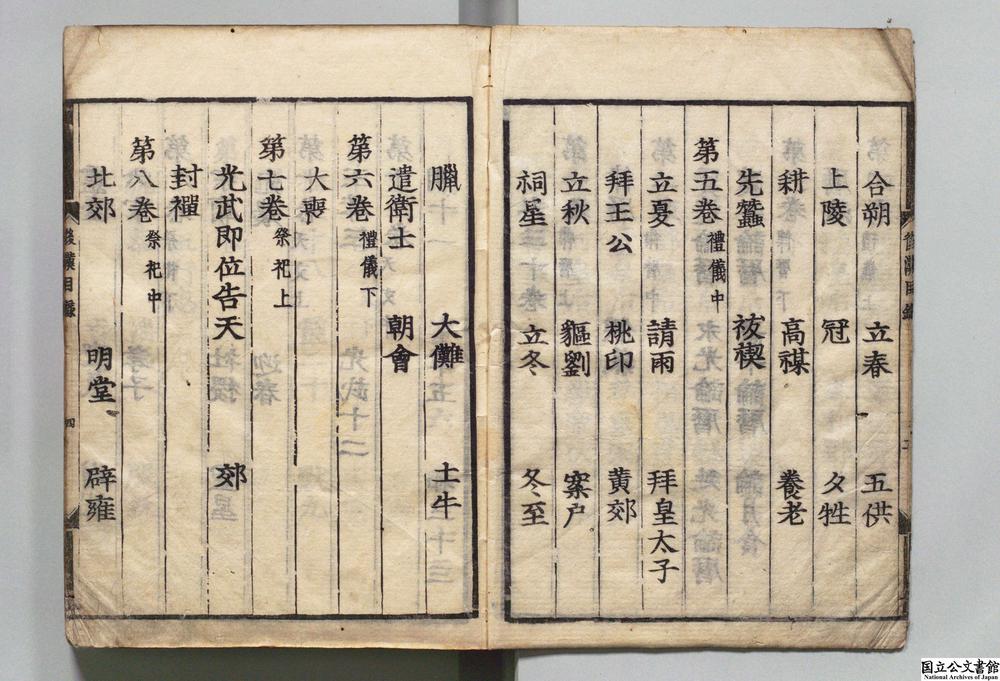 合朔 立春 五供
上陵 冠 夕牲
耕 高禖 養老
先蠶 祓禊
第五卷 禮儀中
立夏 請雨 拜皇太子
拜王公 桃印 黄郊
立秋 貙劉 案户
祠星 立冬 冬至
臘 大儺 土牛
遣衛士 朝會
第六卷 禮儀下
大喪
第七卷 祭祀上
光武即位告天 郊
封禪
第八卷 祭祀中
北郊 明堂 辟雍
後漢目錄
四
国立公文書館
National Archives of Japan